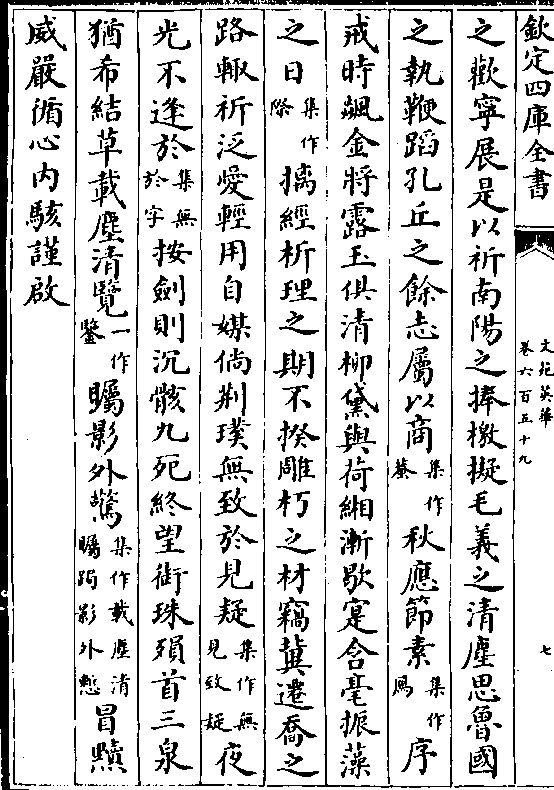 欽定四庫全書
文苑英華
卷六百五十九
七
之歡寧展是以祈南陽之捧檄擬毛義之清塵思魯國
之執鞭蹈孔丘之餘志屬以商集作蔡秋應節素集作鳳序
戒時飆金將露玉俱清柳黛與荷緗漸歇寔含毫振藻
之日集作際摛經析理之期不揆雕朽之材竊冀遷喬之
路輙祈泛愛輕用自媒倘荆璞無致於見疑集作無見致疑夜
光不逢於集無於字按劍則沉骸九死終望銜珠殞首三泉
猶希結草載塵清覽一作鑒矚影外驚集作載塵清矚跼影外慙冒黷
威嚴循心内駭謹啟